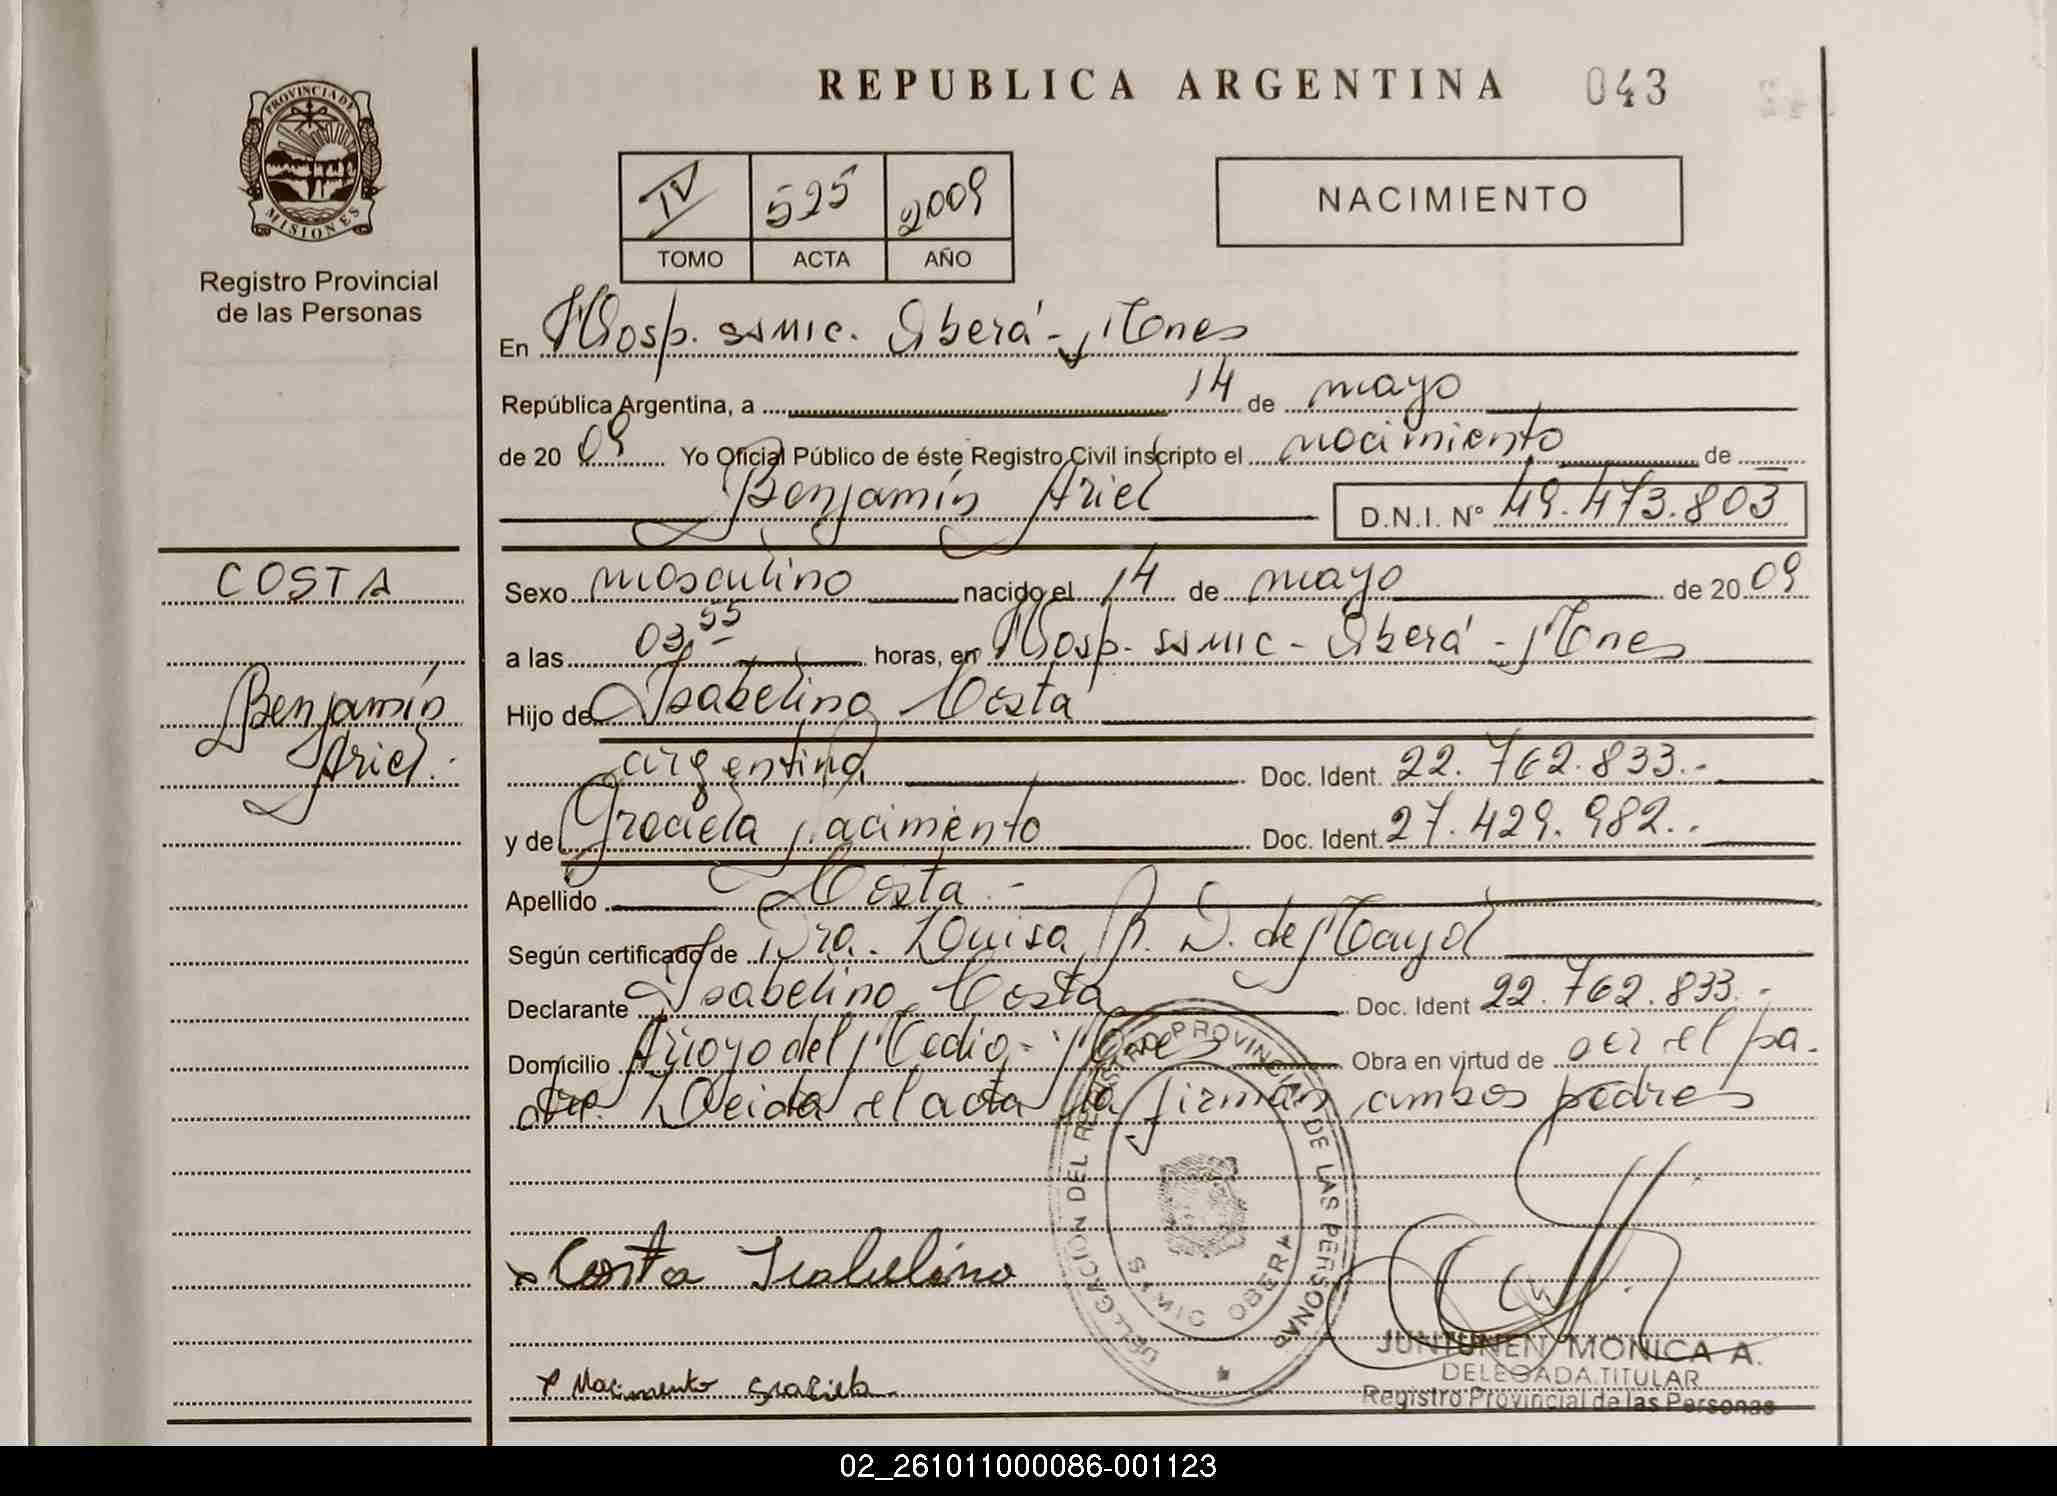 REPUBLICA ARGENTINA 043
PROVINCIA DE
MISIONES
Registro Provincial
de las Personas
IV 525 2009
TOMO ACTA AÑO
NACIMIENTO
En Hosp. SAMIC. Oberá - Mones
República Argentina, a 14 de mayo
de 2009 Yo Oficial Público de éste Registro Civil inscripto el nacimiento de
Benjamín Ariel D.N.I. N° 49.473.803
COSTA
Benjamín
Ariel.-
Sexo masculino nacido el 14 de mayo de 2009
a las 03,55 horas, en Hosp. SAMIC - Oberá - Mones
Hijo de Isabelino Costa
argentina Doc. Ident. 22.762.833.-
y de Graciela Nacimiento Doc. Ident. 27.429.982..
Apellido Costa.-
Según certificado de Dra. Luisa R. D. de Mayol
Declarante Isabelino Costa Doc. Ident 22.762.833.-
Domicilio Arroyo del Medio - Mones Obra en virtud de ser el pa-
dre. Leida el acta la firman ambos padres
DELEGACION DEL REGISTRO PROVINCIAL DE LAS PERSONAS
SAMIC OBERA
x Costa Isabelino
x Nacimiento Graciela
JUNTUNEN MONICA A.
DELEGADA TITULAR
Registro Provincial de las Personas
02_261011000086-001123